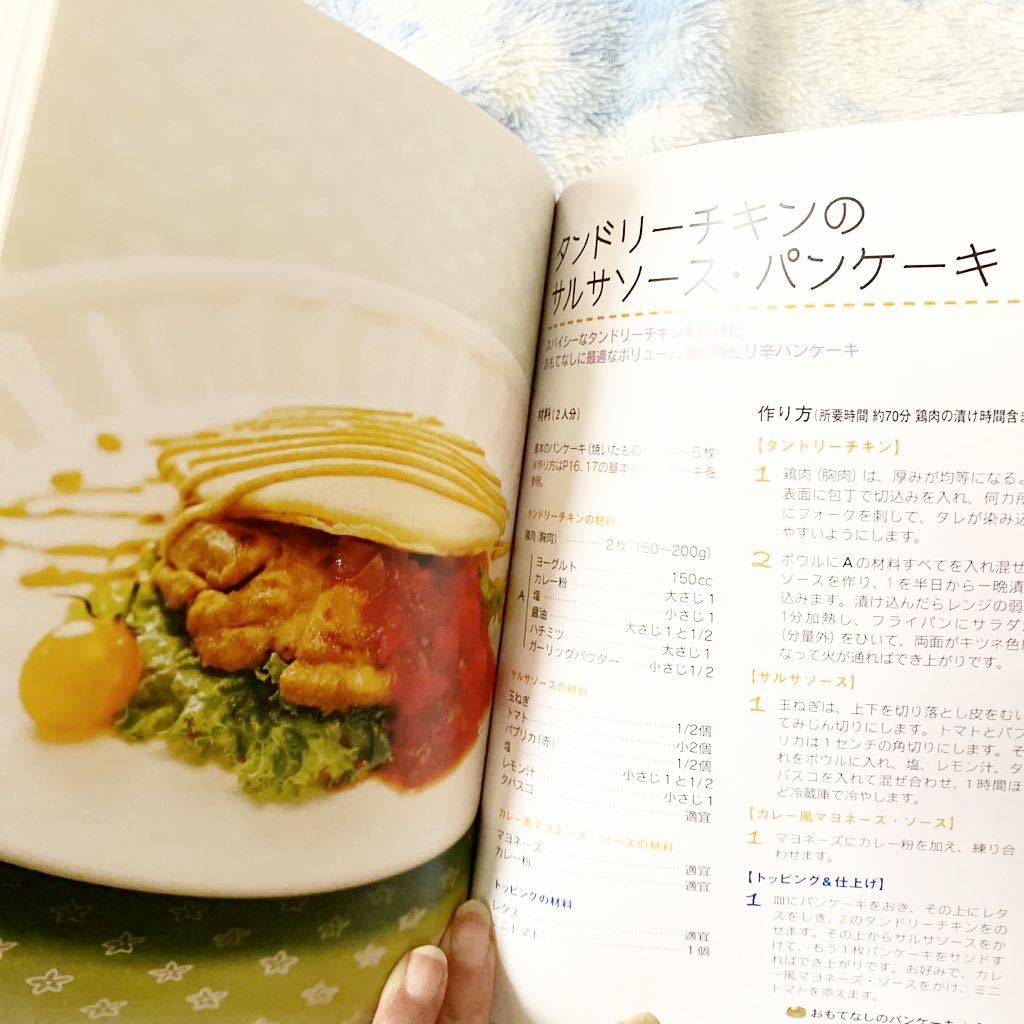 タンドリーチキンの
サルサソース・パンケーキ
スパイシーなタンドリーチキンをのせた
おもてなしに最適なボリューム満点のピリ辛パンケーキ
材料(2人分)
基本のパンケーキ(焼いたもの) 〜5枚
※作り方はP16、17の基本のパンケーキを
参照。
タンドリーチキンの材料
鶏肉(胸肉) 2枚(150〜200g)
A
ヨーグルト 150cc
カレー粉 大さじ1
塩 小さじ1
醤油 大さじ1と1/2
ハチミツ 大さじ1
ガーリックパウダー 小さじ1/2
サルサソースの材料
玉ねぎ 1/2個
トマト 小2個
パプリカ(赤) 1/2個
塩 小さじ1と1/2
レモン汁 小さじ1
タバスコ 適宜
カレー風マヨネーズ・ソースの材料
マヨネーズ 適宜
カレー粉 適宜
トッピングの材料
レタス 適宜
ミニトマト 1個
作り方(所要時間 約70分 鶏肉の漬け時間含ま
【タンドリーチキン】
1 鶏肉(胸肉)は、厚みが均等になるよ
表面に包丁で切込みを入れ、何カ所
にフォークを刺して、タレが染み込
やすいようにします。
2 ボウルにAの材料すべてを入れ混ぜ
ソースを作り、1を半日から一晩漬
込みます。漬け込んだらレンジの弱
1分加熱し、フライパンにサラダ
(分量外)をひいて、両面がキツネ色に
なって火が通ればでき上がりです。
【サルサソース】
1 玉ねぎは、上下を切り落とし皮をむい
てみじん切りにします。トマトとパプ
リカは1センチの角切りにします。そ
れをボウルに入れ、塩、レモン汁、タ
バスコを入れて混ぜ合わせ、1時間ほ
ど冷蔵庫で冷やします。
【カレー風マヨネーズ・ソース】
1 マヨネーズにカレー粉を加え、練り合
わせます。
【トッピング&仕上げ】
1 皿にパンケーキをおき、その上にレタ
スをしき、2のタンドリーチキンをの
せます。その上からサルサソースをか
けて、もう1枚パンケーキをサンドす
ればでき上がりです。お好みで、カレ
ー風マヨネーズ・ソースをかけ、ミニ
トマトを添えます。
おもてなしのパンケーキ